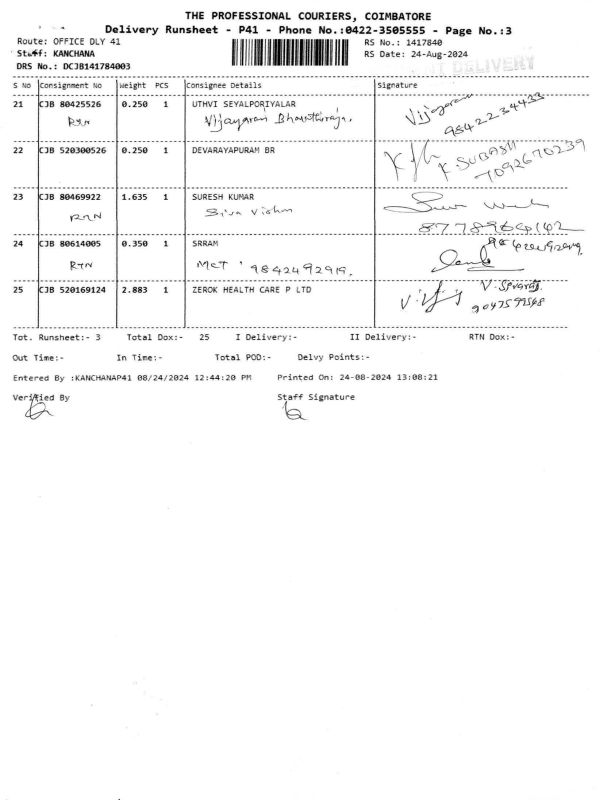 THE PROFESSIONAL COURIERS, COIMBATORE
Delivery Runsheet - P41 - Phone No.:0422-3505555 - Page No.:3
Route: OFFICE DLY 41 RS No.: 1417840
Staff: KANCHANA RS Date: 24-Aug-2024
DRS No.: DCJB141784003 DELIVERY
S No Consignment No Weight PCS Consignee Details Signature
21 CJB 80425526 0.250 1 UTHVI SEYALPORIYALAR Vijayaram
9842234433
22 CJB 520300526 0.250 1 DEVARAYAPURAM BR K. SUBASH
7092670239
23 CJB 80469922 1.635 1 SURESH KUMAR
Siva Vishnu
8778964142
24 CJB 80614005 0.350 1 SRRAM
RTN MCT 9842492919.
25 CJB 520169124 2.883 1 ZEROK HEALTH CARE P LTD
9047599568
Tot. Runsheet:- 3 Total Dox:- 25 I Delivery:- II Delivery:- RTN Dox:-
Out Time:- In Time:- Total POD:- Delvy Points:-
Entered By :KANCHANAP41 08/24/2024 12:44:20 PM Printed On: 24-08-2024 13:08:21
Verified By Staff Signature